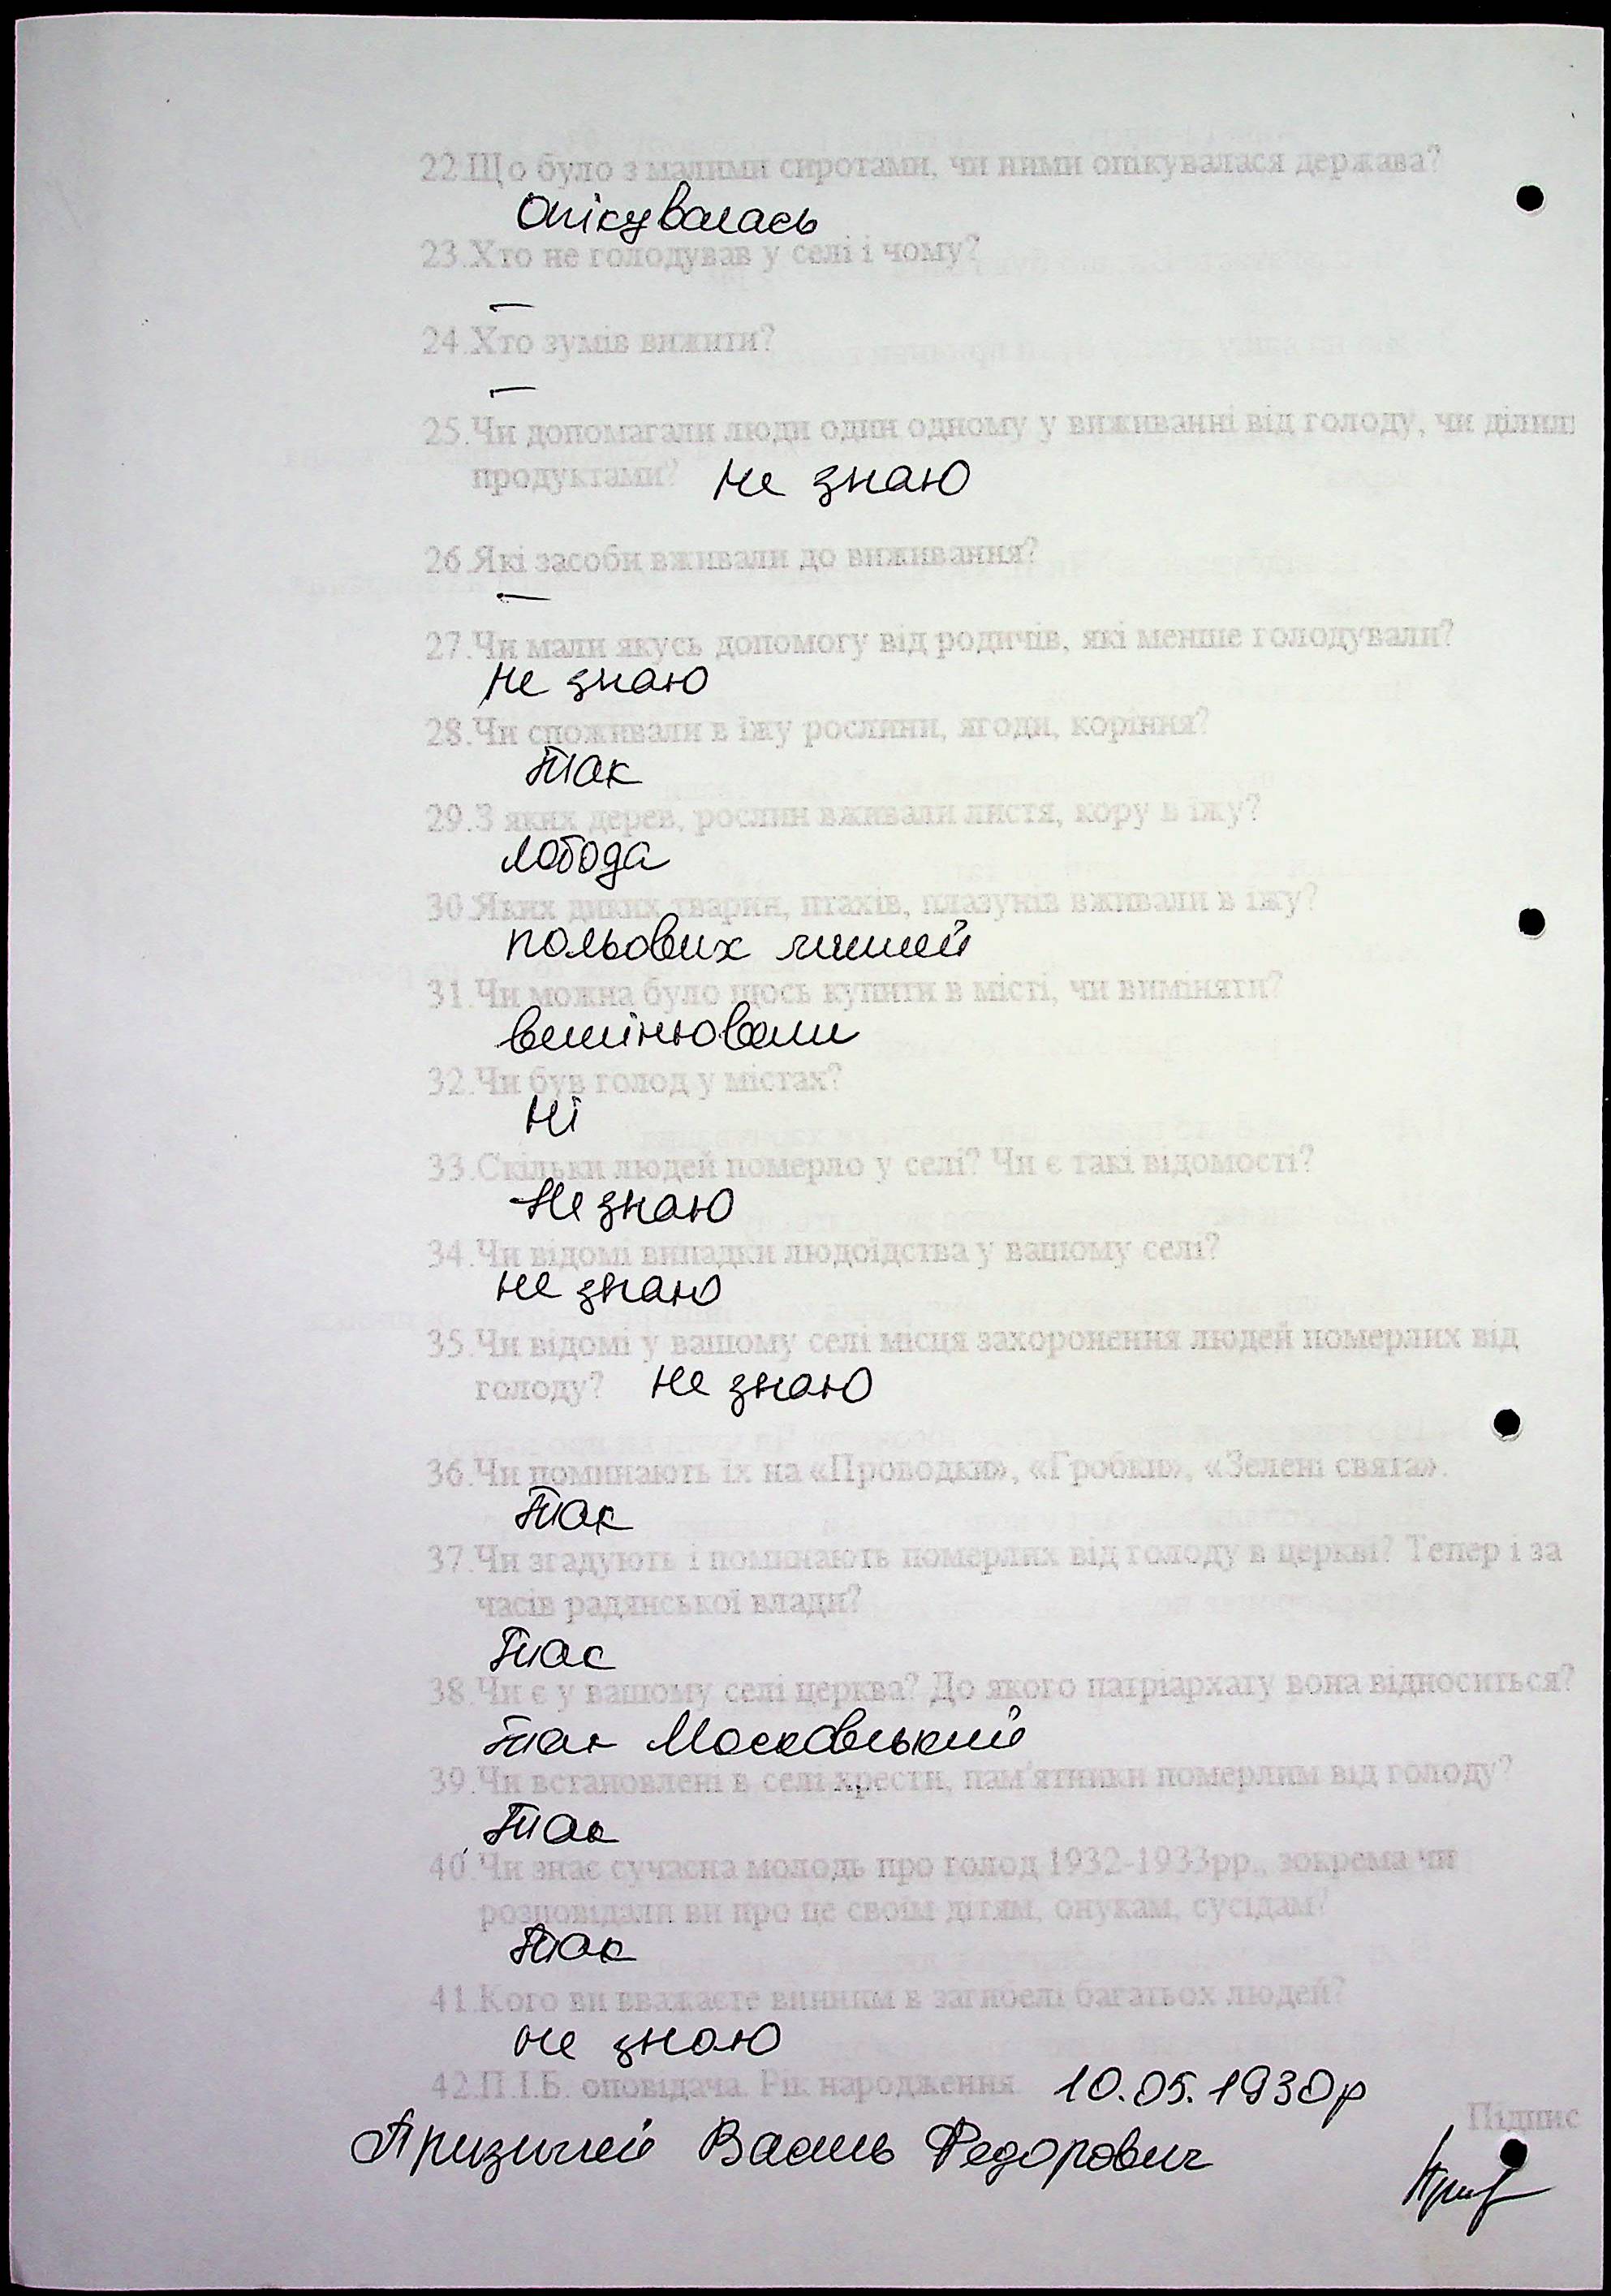 22.Що було з малими сиротами, чи ними опікувалася держава?
Опікувалась
23.Хто не голодував у селі і чому?
—
24.Хто зумів вижити?
—
25.Чи допомагали люди один одному у виживанні від голоду, чи ділили
продуктами? не знаю
26.Які засоби вживали до виживання?
—
27.Чи мали якусь допомогу від родичів, які менше голодували?
не знаю
28.Чи споживали в їжу рослини, ягоди, коріння?
так
29.З яких дерев, рослин вживали листя, кору в їжу?
лобода
30.Яких диких тварин, птахів, плазунів вживали в їжу?
польових мишей
31.Чи можна було щось купити в місті, чи виміняти?
вимінювали
32.Чи був голод у містах?
Ні
33.Скільки людей померло у селі? Чи є такі відомості?
Не знаю
34.Чи відомі випадки людоїдства у вашому селі?
не знаю
35.Чи відомі у вашому селі місця захоронення людей померлих від
голоду? не знаю
36.Чи поминають їх на «Проводки», «Гробки», «Зелені свята».
Так
37.Чи згадують і поминають померлих від голоду в церкві? Тепер і за
часів радянської влади?
Так
38.Чи є у вашому селі церква? До якого патріархату вона відноситься?
так Московський
39.Чи встановлені в селі хрести, пам'ятники померлим від голоду?
Так
40.Чи знає сучасна молодь про голод 1932-1933рр., зокрема чи
розповідали ви про це своїм дітям, онукам, сусідам?
Так
41.Кого ви вважаєте винним в загибелі багатьох людей?
не знаю
42.П.І.Б. оповідача. Рік народження. 10.05.1930р
Підпис
Василь Федорович